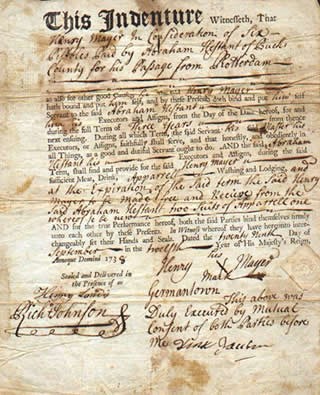 This Indenture Witnesseth, That
Henry Mayer In Consideration of Six
Pistoles Paid by Abraham Hestant of Bucks
County for his Passage from Rotterdam
as also for other good Causes he the said Henry Mayer
hath bound and put himself, and by these Presents doth bind and put him self
Servant to the said Abraham Hestant
Executors and Assigns, from the Day of the Date hereof, for and
during the full Term of Three Years
next ensuing. During all which Term, the said Servant his said
Executors, or Assigns, faithfully shall serve, and that honestly and obediently in
all Things, as a good and dutiful Servant ought to do. AND the said Abraham
Hestant his Executors and Assigns, during the said
Term, shall find and provide for the said Henry Mayer
sufficient Meat, Drink, Apparel Washing and Lodging, and
at the Expiration of the Said term the Said Henry
Mayer to be made free and Receive from the
Said Abraham Hestant two Suits of Apparrell one
whereof to be new
AND for the true Performance hereof, both the said Parties bind themselves firmly
unto each other by these Presents. In Witness whereof they have hereunto inter-
changeably set their Hands and Seals. Dated the Twenty Ninth Day of
September in the twelfth Year of His Majesty's Reign,
Annoque Domini 1738
Sealed and Delivered in
the Presence of us
his
Henry Mayer
mark
Rich Johnson
Germantown
This above was
Duly Executed by Mutual
Consent of both Parties before
me